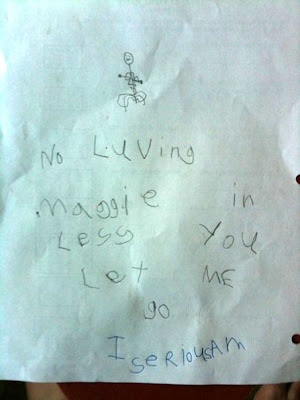 No LUVing
Maggie in
Less You
Let ME
go
I seRioUsAm